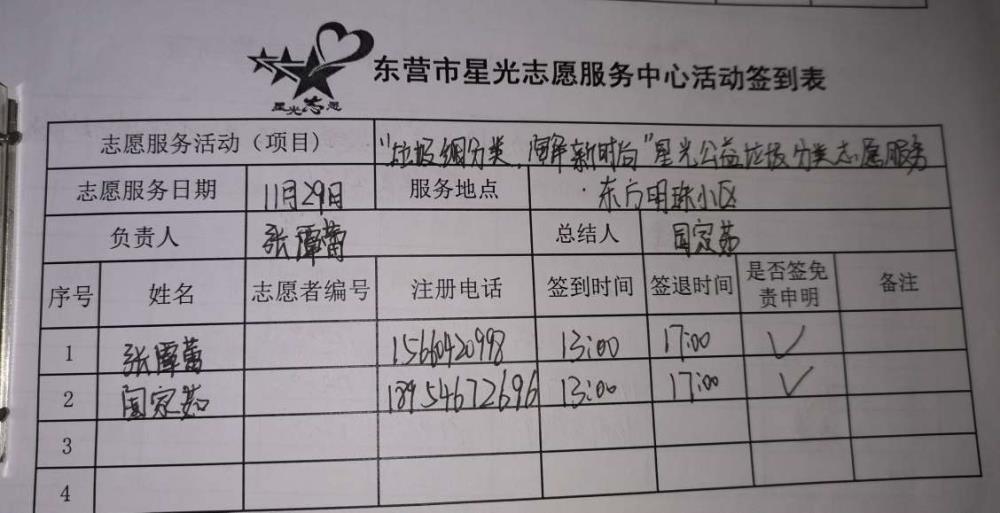 星光志愿
东营市星光志愿服务中心活动签到表
志愿服务活动（项目） "垃圾细分类，闻解新时尚"星光公益垃圾分类志愿服务
志愿服务日期 11月29日 服务地点 东方明珠小区
负责人 张潭蕾 总结人 国家茹
序号 姓名 志愿者编号 注册电话 签到时间 签退时间 是否签免责申明 备注
1 张潭蕾 15660420998 13:00 17:00 ✓
2 国家茹 18954672696 13:00 17:00 ✓
3
4